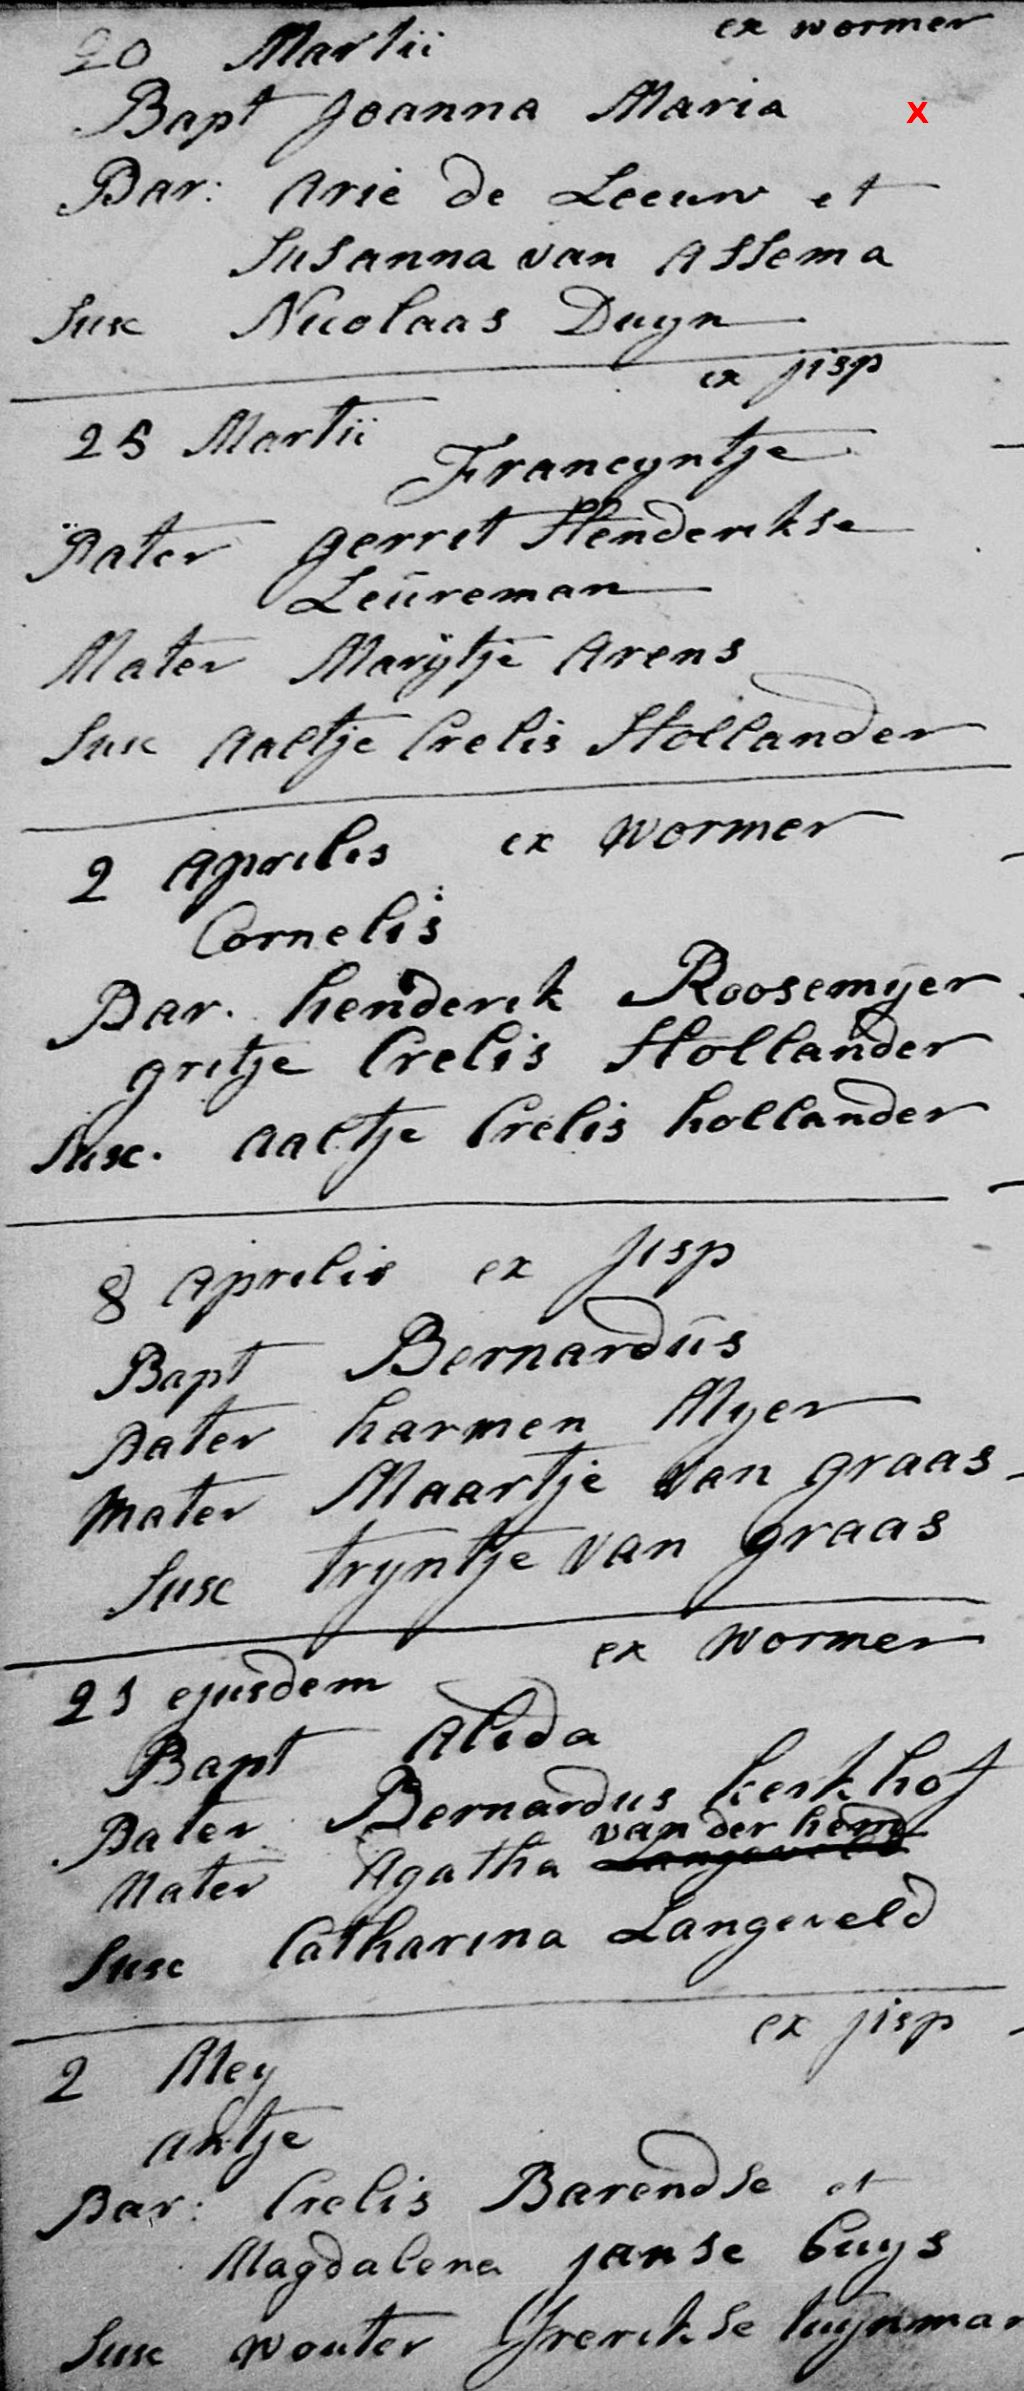 20 Martii ex wormer
Bapt Joanna Maria x
Par: Arie de Leeuw et
Susanna van Assema
Susc Nicolaas Duyn
ex jisp
25 Martii
Francyntje
Pater gerrit Henderikse
Leureman
Mater Marijtje Arens
Susc Aaltje Crelis Hollander
2 Aprilis ex wormer
Cornelis
Par. henderik Roosemijer
gritje Crelis Hollander
Susc. Aaltje Crelis hollander
8 Aprilis ex Jisp
Bapt Bernardus
Pater harmen Myer
Mater Maartje van graas
Susc tryntje van graas
ex wormer
21 ejusdem
Bapt Alida
Pater Bernardus kerkhof
van der hem
Mater Agatha Langeveld
Susc Catharina Langeveld
ex jisp
2 Mey
Antje
Par: Crelis Barendse et
Magdalena janse buys
Susc wouter tuynman